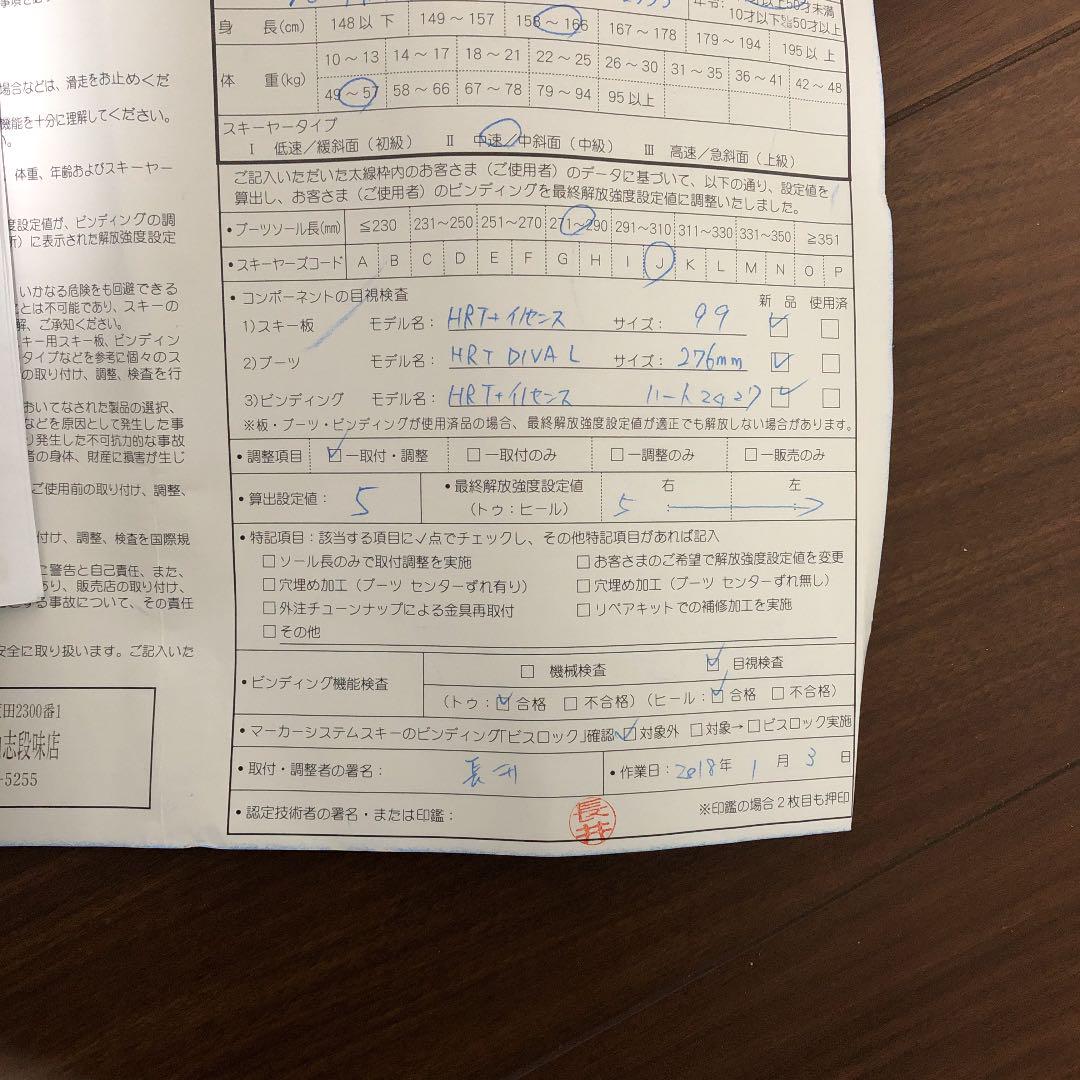 場合などは、滑走をお止めくだ
機能を十分に理解してください。
体重、年齢およびスキーヤー
度設定値が、ビンディングの調
に表示された解放強度設定
いかなる危険をも回避できる
とは不可能であり、スキーの
解、ご承知ください。
キー用スキー板、ビンディン
タイプなどを参考に個々のス
の取り付け、調整、検査を行
おいてなされた製品の選択、
などを原因として発生した事
り発生した不可抗力的な事故
者の身体、財産に損害が生じ
ご使用前の取り付け、調整、
付け、調整、検査を国際規
警告と自己責任、また、
あり、販売店の取り付け、
する事故について、その責任
安全に取り扱います。ご記入いた
田2300番1
志段味店
-5255
10才以下 50才以上
身 長(cm) 148以下 149～157 158～166 167～178 179～194 195以上
体 重(kg) 10～13 14～17 18～21 22～25 26～30 31～35 36～41 42～48
49～57 58～66 67～78 79～94 95以上
スキーヤータイプ
Ⅰ 低速／緩斜面（初級） Ⅱ 中速／中斜面（中級） Ⅲ 高速／急斜面（上級）
ご記入いただいた太線枠内のお客さま（ご使用者）のデータに基づいて、以下の通り、設定値を
算出し、お客さま（ご使用者）のビンディングを最終解放強度設定値に調整いたしました。
•ブーツソール長(mm) ≦230 231～250 251～270 271～290 291～310 311～330 331～350 ≧351
•スキーヤーズコード A B C D E F G H I J K L M N O P
•コンポーネントの目視検査 新 品 使用済
1)スキー板 モデル名： HRT+イノセンス サイズ： 99 ☑ □
2)ブーツ モデル名： HRT DIVA L サイズ： 276mm ☑ □
3)ビンディング モデル名： HRT+イノセンス ☑ □
※板・ブーツ・ビンディングが使用済品の場合、最終解放強度設定値が適正でも解放しない場合があります。
•調整項目 ☑—取付・調整 □—取付のみ □—調整のみ □—販売のみ
•算出設定値： 5 •最終解放強度設定値 （トゥ：ヒール） 右 左 5 →
•特記項目：該当する項目に✓点でチェックし、その他特記項目があれば記入
□ソール長のみで取付調整を実施 □お客さまのご希望で解放強度設定値を変更
□穴埋め加工（ブーツ センターずれ有り） □穴埋め加工（ブーツ センターずれ無し）
□外注チューンナップによる金具再取付 □リペアキットでの補修加工を実施
□その他
•ビンディング機能検査 □ 機械検査 ☑ 目視検査
（トゥ：☑合格 □不合格）（ヒール：☑合格 □不合格）
•マーカーシステムスキーのビンディング「ビスロック」確認 ☑対象外 □対象→□ビスロック実施
•取付・調整者の署名： 長井 •作業日：2018年 1月 3日
•認定技術者の署名・または印鑑： 長井 ※印鑑の場合2枚目も押印